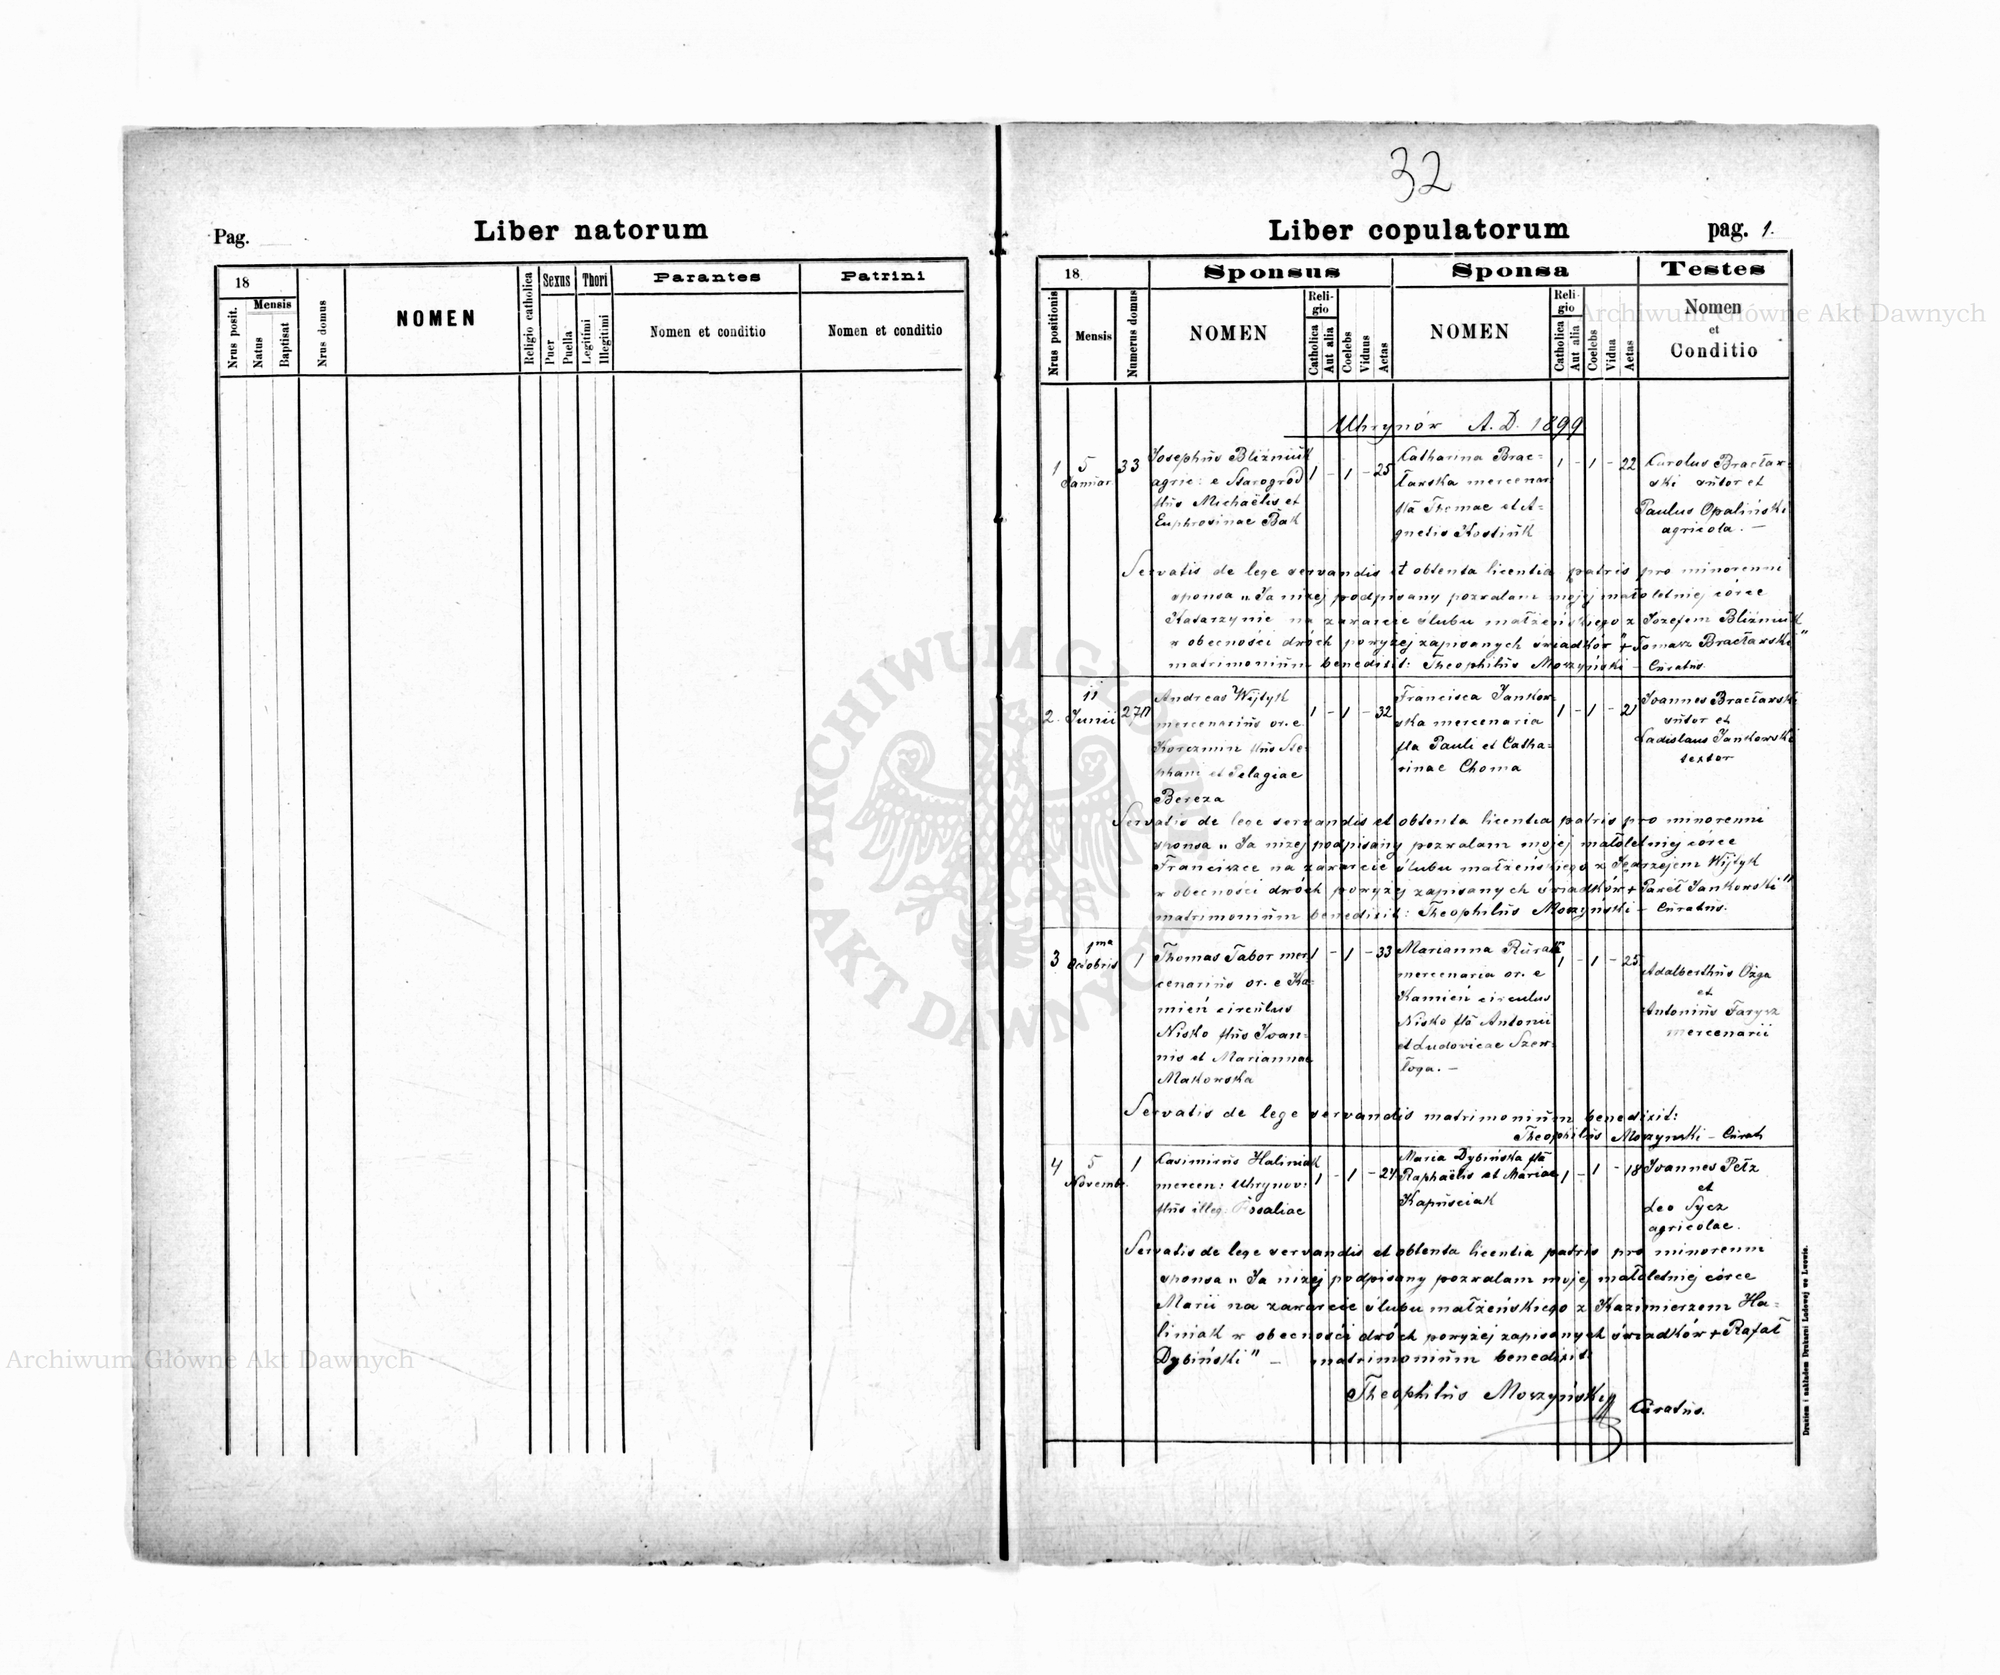 32
Pag.
Liber natorum
18
Mensis
Nrus posit.
Natus
Baptisat
Nrus domus
NOMEN
Religio catholica
Sexus
Puer
Puella
Thori
Legitimi
Illegitimi
Parantes
Nomen et conditio
Patrini
Nomen et conditio
Liber copulatorum
pag. 1.
18
Sponsus
Sponsa
Testes
Nrus positionis
Mensis
Numerus domus
NOMEN
Religio
Catholica
Aut alia
Coelebs
Viduus
Aetas
NOMEN
Religio
Catholica
Aut alia
Coelebs
Vidua
Aetas
Nomen
et
Conditio
Uhrynów A. D. 1899
1 5 Januar. 33
Josephus Bliźniuk
agric: e Starogród
flius Michaëlis et
Euphrosinae Bak
1 - 1 - 25
Catharina Brac=
ławska mercenar.
flia Thomae et A=
gnetis Kostiuk
1 - 1 - 22
Carolus Bracław=
ski sutor et
Paulus Opaliński
agricola. —
Servatis de lege servandis et obtenta licentia patris pro minorenni
sponsa „Ja niżej podpisany pozwalam mojej małoletniej córce
Katarzynie na zawarcie ślubu małżeńskiego z Józefem Bliźniuk
w obecności dwóch powyżej zapisanych świadków" + Tomasz Bracławski"
matrimonium benedixit: Theophilus Moszyński — Curatus.
2. 11 Junii 27
Andreas Wijtyk
mercenarius or. e
Korczmin flius Ste=
phani et Pelagiae
Bereza
1 - 1 - 32
Francisca Jankow=
ska mercenaria
flia Pauli et Catha=
rinae Choma
1 - 1 - 21
Ioannes Bracławski
sutor et
Ladislaus Jankowski
textor
Servatis de lege servandis et obtenta licentia patris pro minorenni
sponsa „Ja niżej podpisany pozwalam mojej małoletniej córce
Franciszce na zawarcie ślubu małżeńskiego z Jędrzejem Wijtyk
w obecności dwóch powyżej zapisanych świadków + Paweł Jankowski"
matrimonium benedixit: Theophilus Moszyński — Curatus.
3 1ma Octobris 1
Thomas Tabor mer=
cenarius or. e Ka=
mień circulus
Nisko flius Ioan=
nis et Mariannae
Makowska
1 - 1 - 33
Marianna Rurak
mercenaria or. e
Kamień circulus
Nisko flia Antonii
et Ludovicae Szew=
łoga. —
1 - 1 - 25
Adalberthus Ożga
et
Antonius Farysz
mercenarii
Servatis de lege servandis matrimonium benedixit:
Theophilus Moszynski — Curat.
4 5 Novembr. 1
Casimirus Haliniak
mercen: Uhrynov:
flius illeg. Rosaliae
1 - 1 - 24
Maria Dybińska flia
Raphaëlis et Mariae
Kapuściak
1 - 1 - 18
Ioannes Petz
et
Leo Sycz
agricolae.
Servatis de lege servandis et obtenta licentia patris pro minorenni
sponsa „Ja niżej podpisany pozwalam mojej małoletniej córce
Marii na zawarcie ślubu małżeńskiego z Kazimierzem Ha=
liniak w obecności dwóch powyżej zapisanych świadków + Rafał
Dybiński" — matrimonium benedixit:
Theophilus Moszyński
Curatus.
Drukiem i nakładem Drukarni Ludowej we Lwowie.
Archiwum Główne Akt Dawnych
Archiwum Główne Akt Dawnych
ARCHIWUM GŁÓWNE AKT DAWNYCH